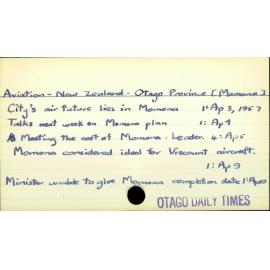 Aviation - New Zealand - Otago Province [Momona]
City's air future lies in Momona 1:Ap 3, 1957
Talks next week on Momona plan 1: Ap 4
Meeting the cost of Momona. Leader. 4: Ap 5
Momona considered ideal for Viscount aircraft.
1: Ap 9
Minister unable to give Momona completion date 1:Ap10
OTAGO DAILY TIMES